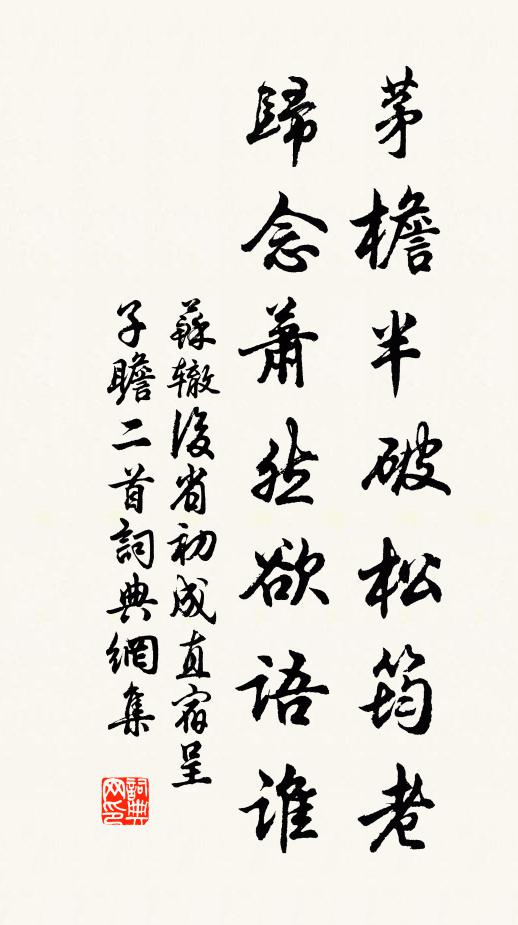 茅檐半破松筠老
歸念蕭然欲語誰
蘇辙後省初成直宿呈
子瞻二首詞典網集
詞典网印